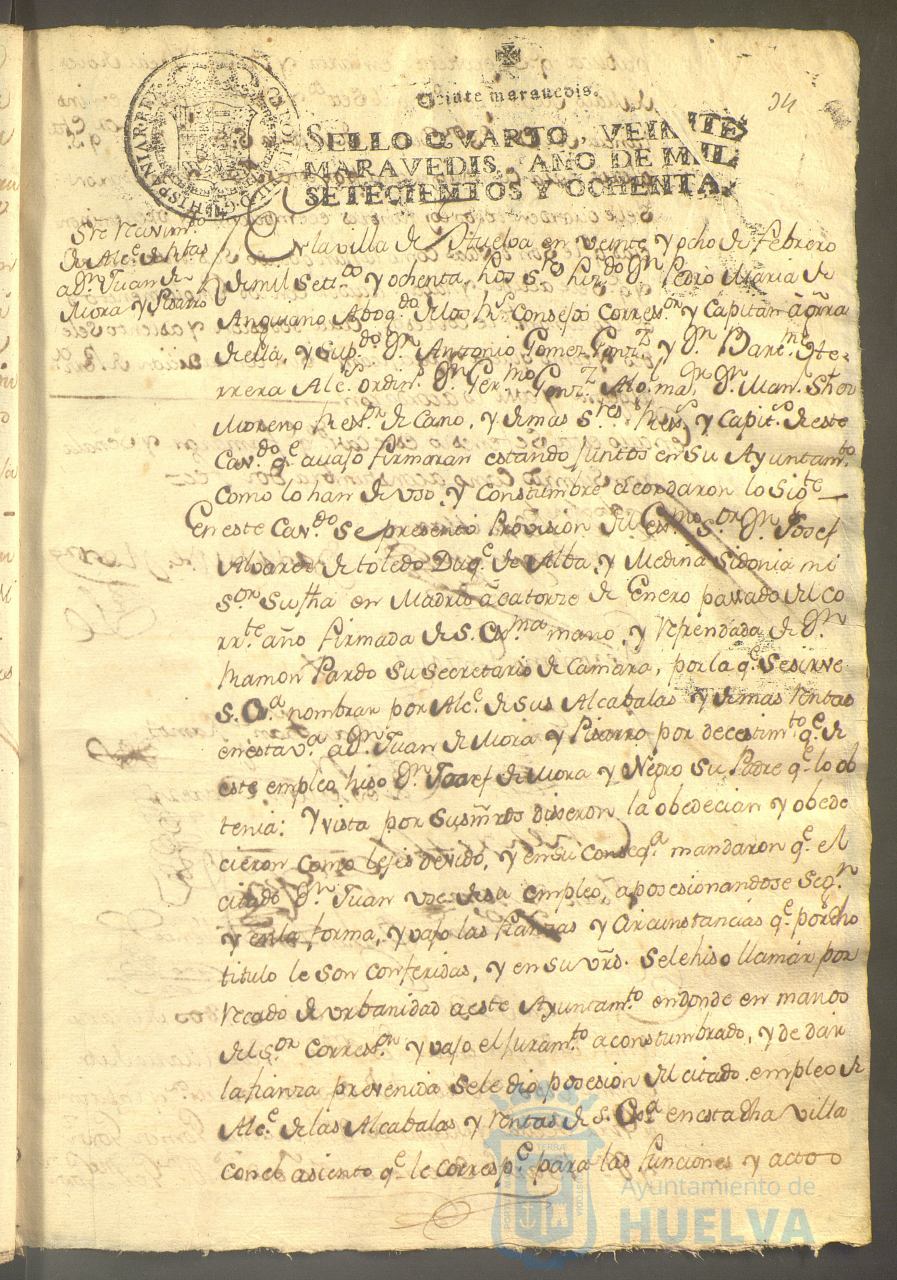 Veinte maravedis.
24
SELLO QVARTO, VEINTE
MARAVEDIS, AÑO DE MIL
SETECIENTOS Y OCHENTA.
CAROLUS III D.G. HISPANIAR REX
Sre Recivim.to
de Alc.e de Rtas
a D.n Juan de
Mora y Pisarro
En la villa de Huelva en veinte y ocho de Febrero
de mil set.tos y ochenta, los S.res Liz.do D.n Pedro Maria de
Anguiano Abog.do de los R.s Consejos Corres.or y Capitan à Grra
de ella, y Sup.do D.n Antonio Gomez Gonz.z y D.n Bar.me He-
rrera Alc.s ordin.s D.n Ger.mo Gonz.z Alg.l ma.r D.n Man.l Shez
Moreno de Cano, y demas S.res y Capit.s de este
Cav.do q.e avajo firmaran estando juntos en su Ayuntam.to
como lo han de uso, y constumbre acordaron lo sig.te
En este Cav.do se presentó Provision del Ex.mo S.or D.n Josef
Alvares de toledo Duq.e de Alba, y Medina Sidonia mi
S.or su fha en Madrid à catorze de Enero pasado del co
rr.te año firmada de S. Ex.ma mano, y refrendada de D.n
Ramon Pardo su secretario de Camara, por la q.e se sirve
S. Ex.a nombrar por Alc.e de sus Alcabalas y demas Rentas
en esta v.a a D.n Juan de Mora y Pisarro por decestim.to q.e de
este empleo hiso D.n Josef de Mora y Negro su Padre q.e lo ob
tenia: Y vista por sus mrds dijeron la obedecian y obede
cieron como les es devido, y en su conseq.a mandaron q.e el
citado D.n Juan use de su empleo, aposesionandose seg.n
y en la forma, y vajo las fianzas y circunstancias q.e por dho
titulo le son conferidas, y en su vrd. se le hiso llamar por
recado de urbanidad a este Ayuntam.to en donde en manos
del S.or Corres.or y vajo el juram.to aconstumbrado, y de dar
la fianza prevenida se le dio posesion del citado empleo de
Alc.e de las Alcabalas y Rentas de S. Ex.a en esta dha villa
con el asiento q.e le corresp.e para las funciones y actos
Ayuntamiento de
HUELVA